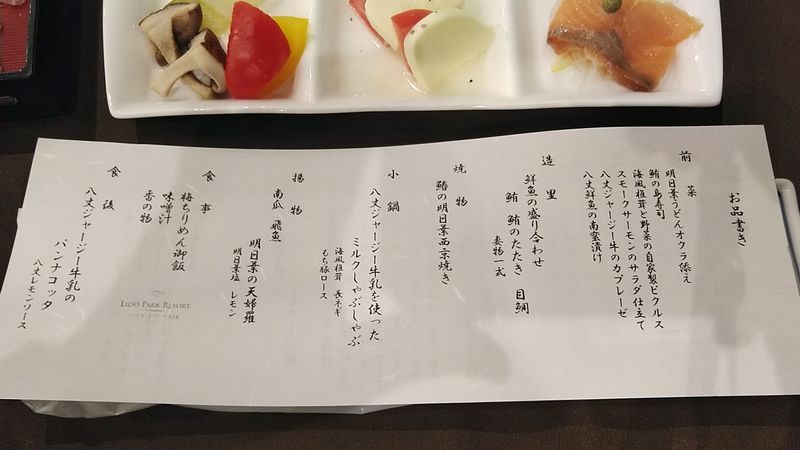 お品書き
前菜
明日葉うどんオクラ添え
鮪の島寿司
海風椎茸と野菜の自家製ピクルス
スモークサーモンのサラダ仕立て
八丈ジャージー牛のカプレーゼ
八丈鮮魚の南蛮漬け
造里
鮮魚の盛り合わせ
鮪 鮪のたたき 目鯛
妻物一式
焼物
鰆の明日葉西京焼き
小鍋
八丈ジャージー牛乳を使った
ミルクしゃぶしゃぶ
海風椎茸 長ネギ
もち豚ロース
揚物
南瓜 飛魚
明日葉の天婦羅
明日葉塩 レモン
食事
梅ちりめん御飯
味噌汁
香の物
食後
八丈ジャージー牛乳の
パンナコッタ
八丈レモンソース
LIDO PARK RESORT